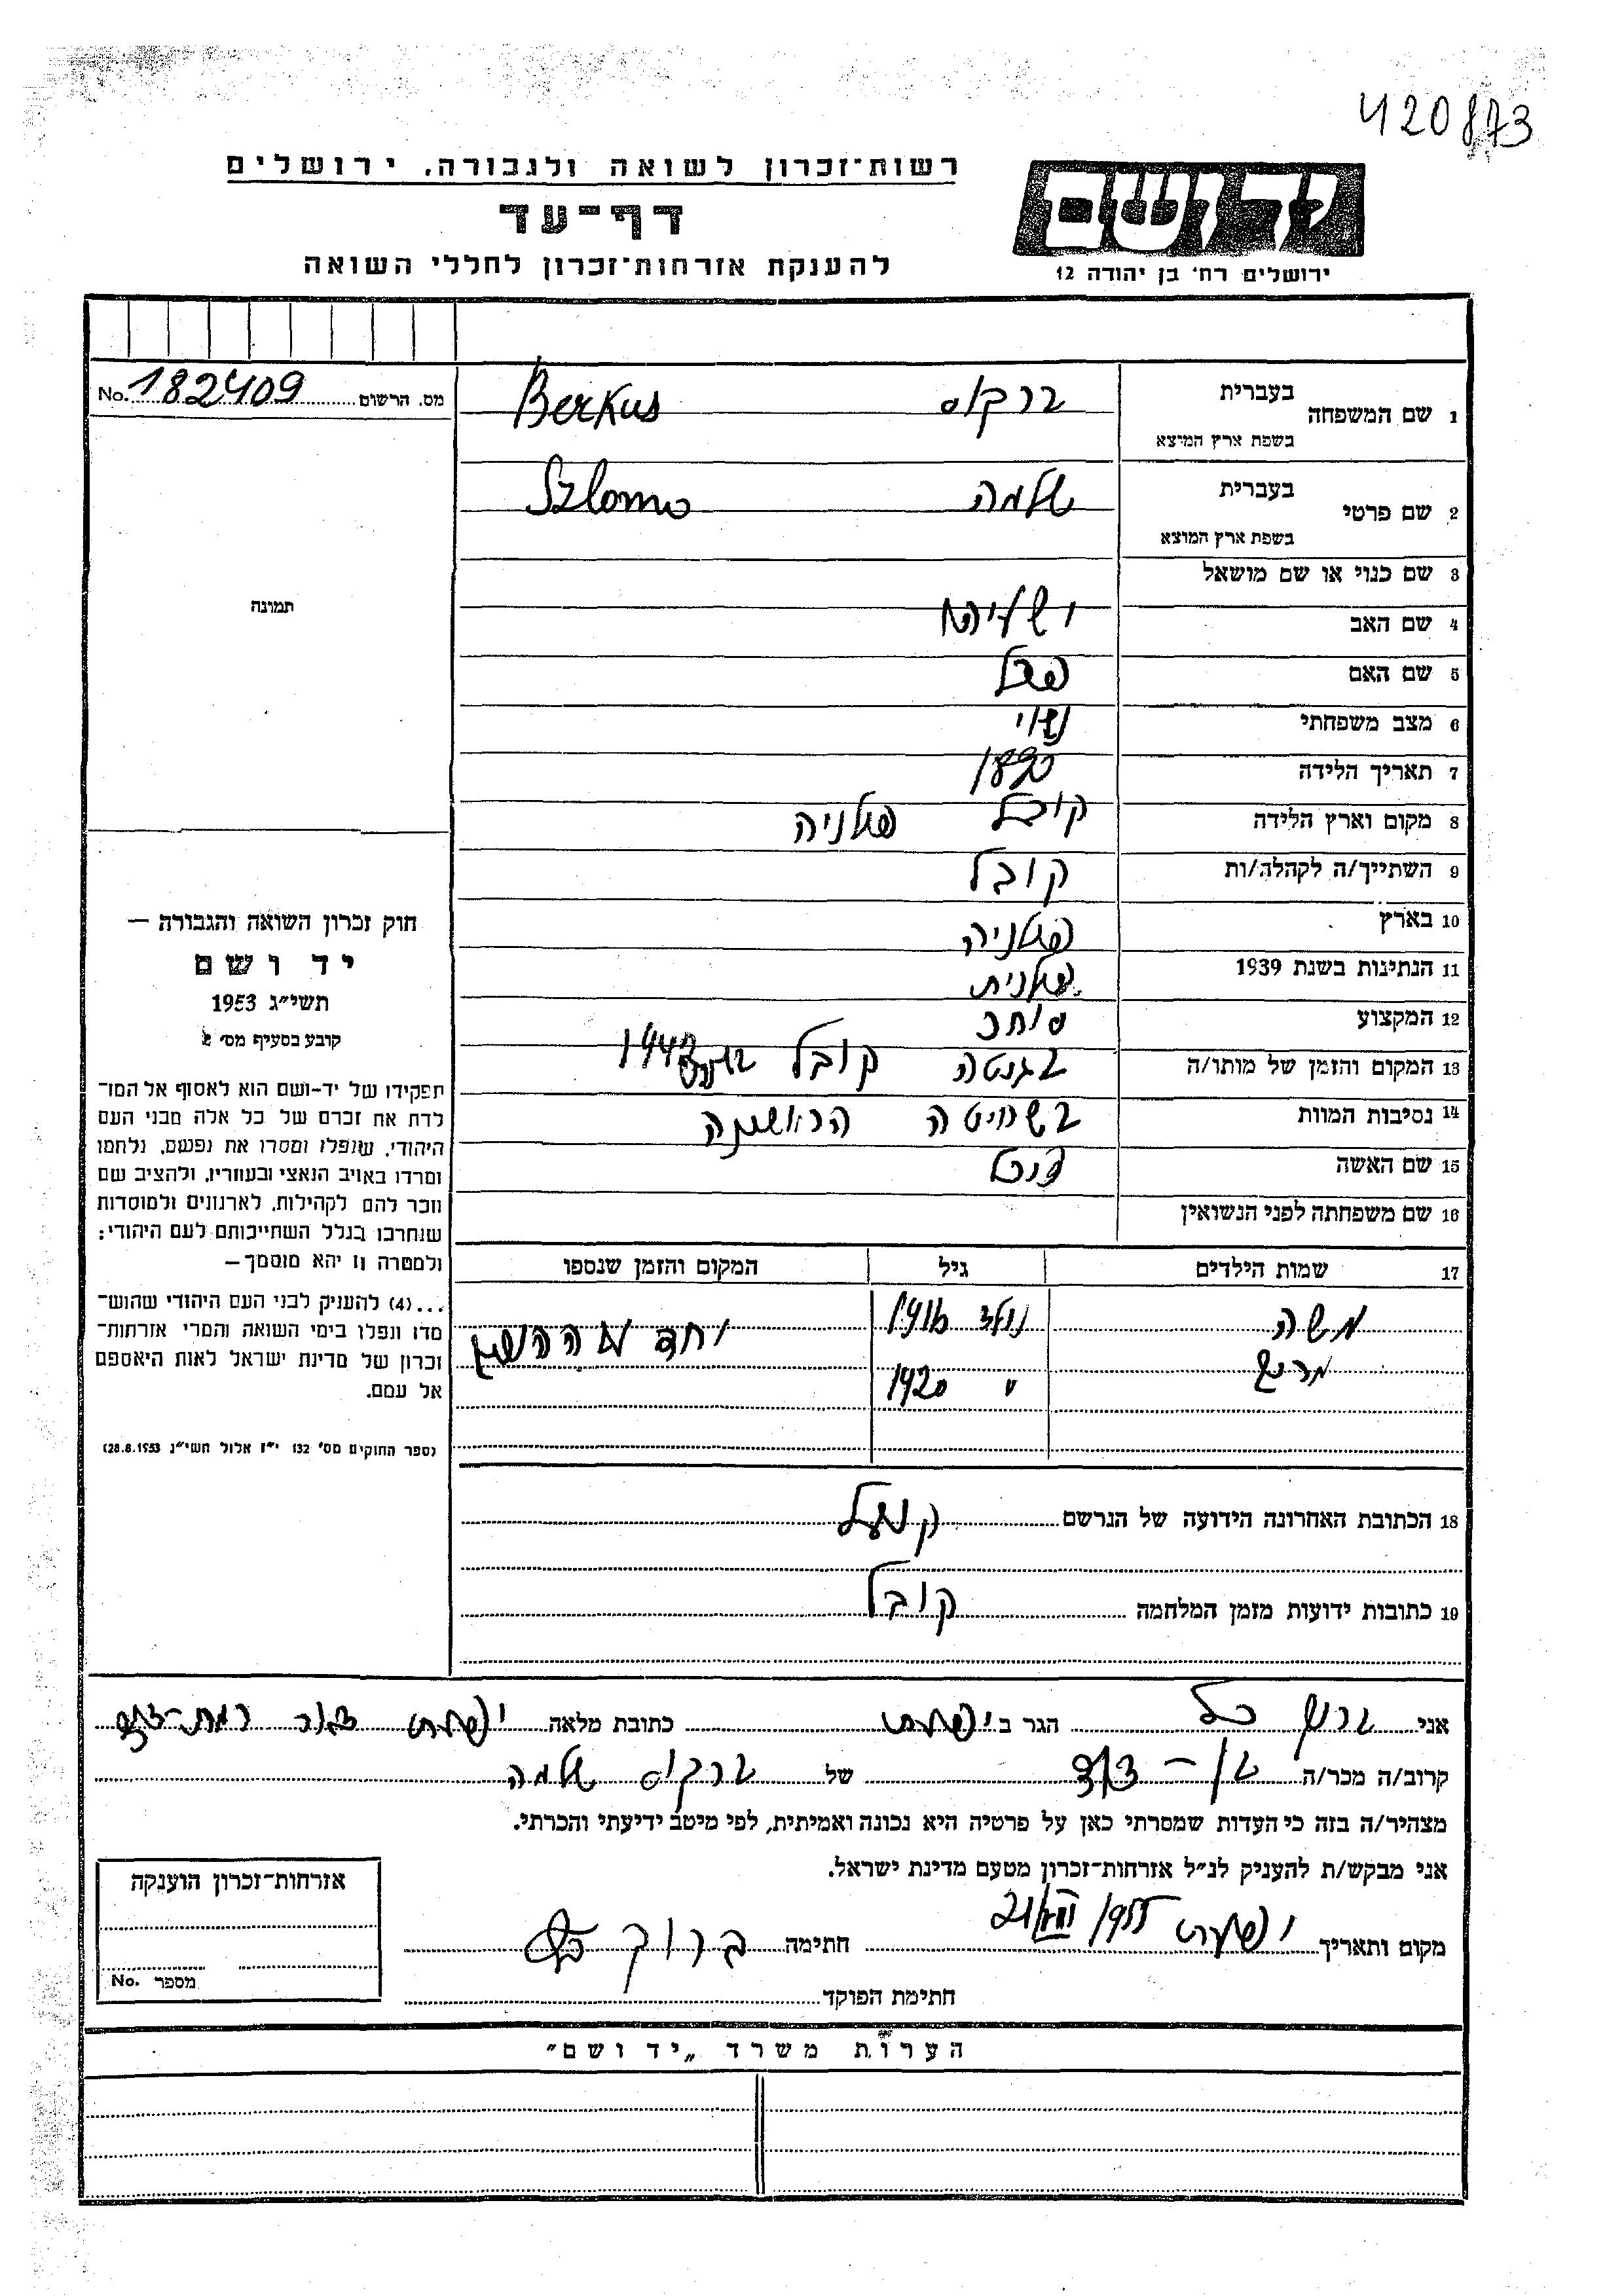 420873
רשות־זכרון לשואה ולגבורה, ירושלים
דף־עד
להענקת אזרחות־זכרון לחללי השואה
ידושם
ירושלים רח' בן יהודה 12
מס. הרשום No. 182409
תמונה
חוק זכרון השואה והגבורה —
יד ושם
תשי״ג 1953
קובע בסעיף מס' 2
תפקידו של יד-ושם הוא לאסוף אל המו־
לדת את זכרם של כל אלה מבני העם
היהודי, שנפלו ומסרו את נפשם, נלחמו
ומרדו באויב הנאצי ובעוזריו, ולהציב שם
וזכר להם לקהילות, לארגונים ולמוסדות
שנחרבו בגלל השתייכותם לעם היהודי;
ולמטרה זו יהא מוסמך —
...(4) להעניק לבני העם היהודי שהוש־
מדו ונפלו בימי השואה והמרי אזרחות־
זכרון של מדינת ישראל לאות היאספם
אל עמם.
(ספר החוקים מס' 132 י״ז אלול תשי״ג 28.8.1953)
1 שם המשפחה בעברית ברקוס Berkus
בשפת ארץ המוצא
2 שם פרטי בעברית שלמה Szlomo
בשפת ארץ המוצא
3 שם כנוי או שם מושאל
4 שם האב ישעיהו
5 שם האם פרל
6 מצב משפחתי נשוי
7 תאריך הלידה 1890
8 מקום וארץ הלידה קובל פולניה
9 השתייך/ה לקהלה/ות קובל
10 בארץ פולניה
11 הנתינות בשנת 1939 פולנית
12 המקצוע סוחר
13 המקום והזמן של מותו/ה בגטה קובל
14 נסיבות המוות בשחיטה הראשונה
15 שם האשה
16 שם משפחתה לפני הנשואין
17 שמות הילדים גיל המקום והזמן שנספו
משה נולד
״ 1920
יחד עם
18 הכתובת האחרונה הידועה של הנרשם קובל
19 כתובות ידועות מזמן המלחמה קובל
אני ברוך הגר ב כתובת מלאה דאר רמת-דוד
קרוב/ה מכר/ה בן - דוד של ברקוס שלמה
מצהיר/ה בזה כי העדות שמסרתי כאן על פרטיה היא נכונה ואמיתית, לפי מיטב ידיעתי והכרתי.
אני מבקש/ת להעניק לנ״ל אזרחות־זכרון מטעם מדינת ישראל.
מקום ותאריך 1955 חתימה ברוך
חתימת הפוקד
אזרחות־זכרון הוענקה
מספר No.
הערות משרד „יד ושם״